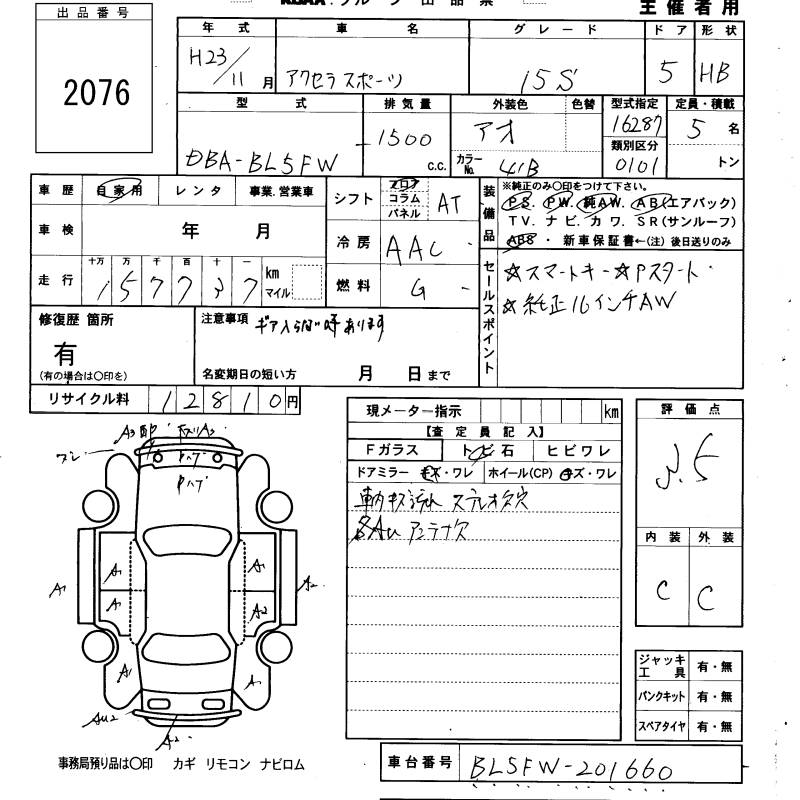 出品番号
2076
主催者用
年式 車名 グレード ドア 形状
H23/11月 アクセラスポーツ 15S 5 HB
型式 排気量 外装色 色替 型式指定 定員・積載
DBA-BL5FW 1500 c.c. アオ 16287 5名
カラーNo. 41B 類別区分 0101 トン
車歴 自家用 レンタ 事業.営業車
シフト フロア コラム パネル AT
装備品
※純正のみ○印をつけて下さい。
PS. PW. 純AW. AB(エアバック)
TV. ナビ. カワ. SR(サンルーフ)
ABS ・ 新車保証書←(注) 後日送りのみ
車検 年 月
冷房 AAC
走行 十万 万 千 百 十 一
157737 km マイル
燃料 G
セールスポイント
☆スマートキー☆Pスタート
☆純正16インチAW
修復歴 箇所
有
(有の場合は○印を)
注意事項 ギア入らない時あります
名変期日の短い方 月 日まで
リサイクル料 12810円
現メーター指示 km
【査定員記入】
Fガラス トビ石 ヒビワレ
ドアミラー キズ・ワレ ホイール(CP) キズ・ワレ
ステレオ欠
アンテナ欠
評価点
3.5
内装 外装
C C
ジャッキ工具 有・無
パンクキット 有・無
スペアタイヤ 有・無
A3
Pハゲ
Pハゲ
A1 A1
A1 A2
A1 A2
A1 A1
AU2
A2
事務局預り品は○印 カギ リモコン ナビロム
車台番号 BL5FW-201660